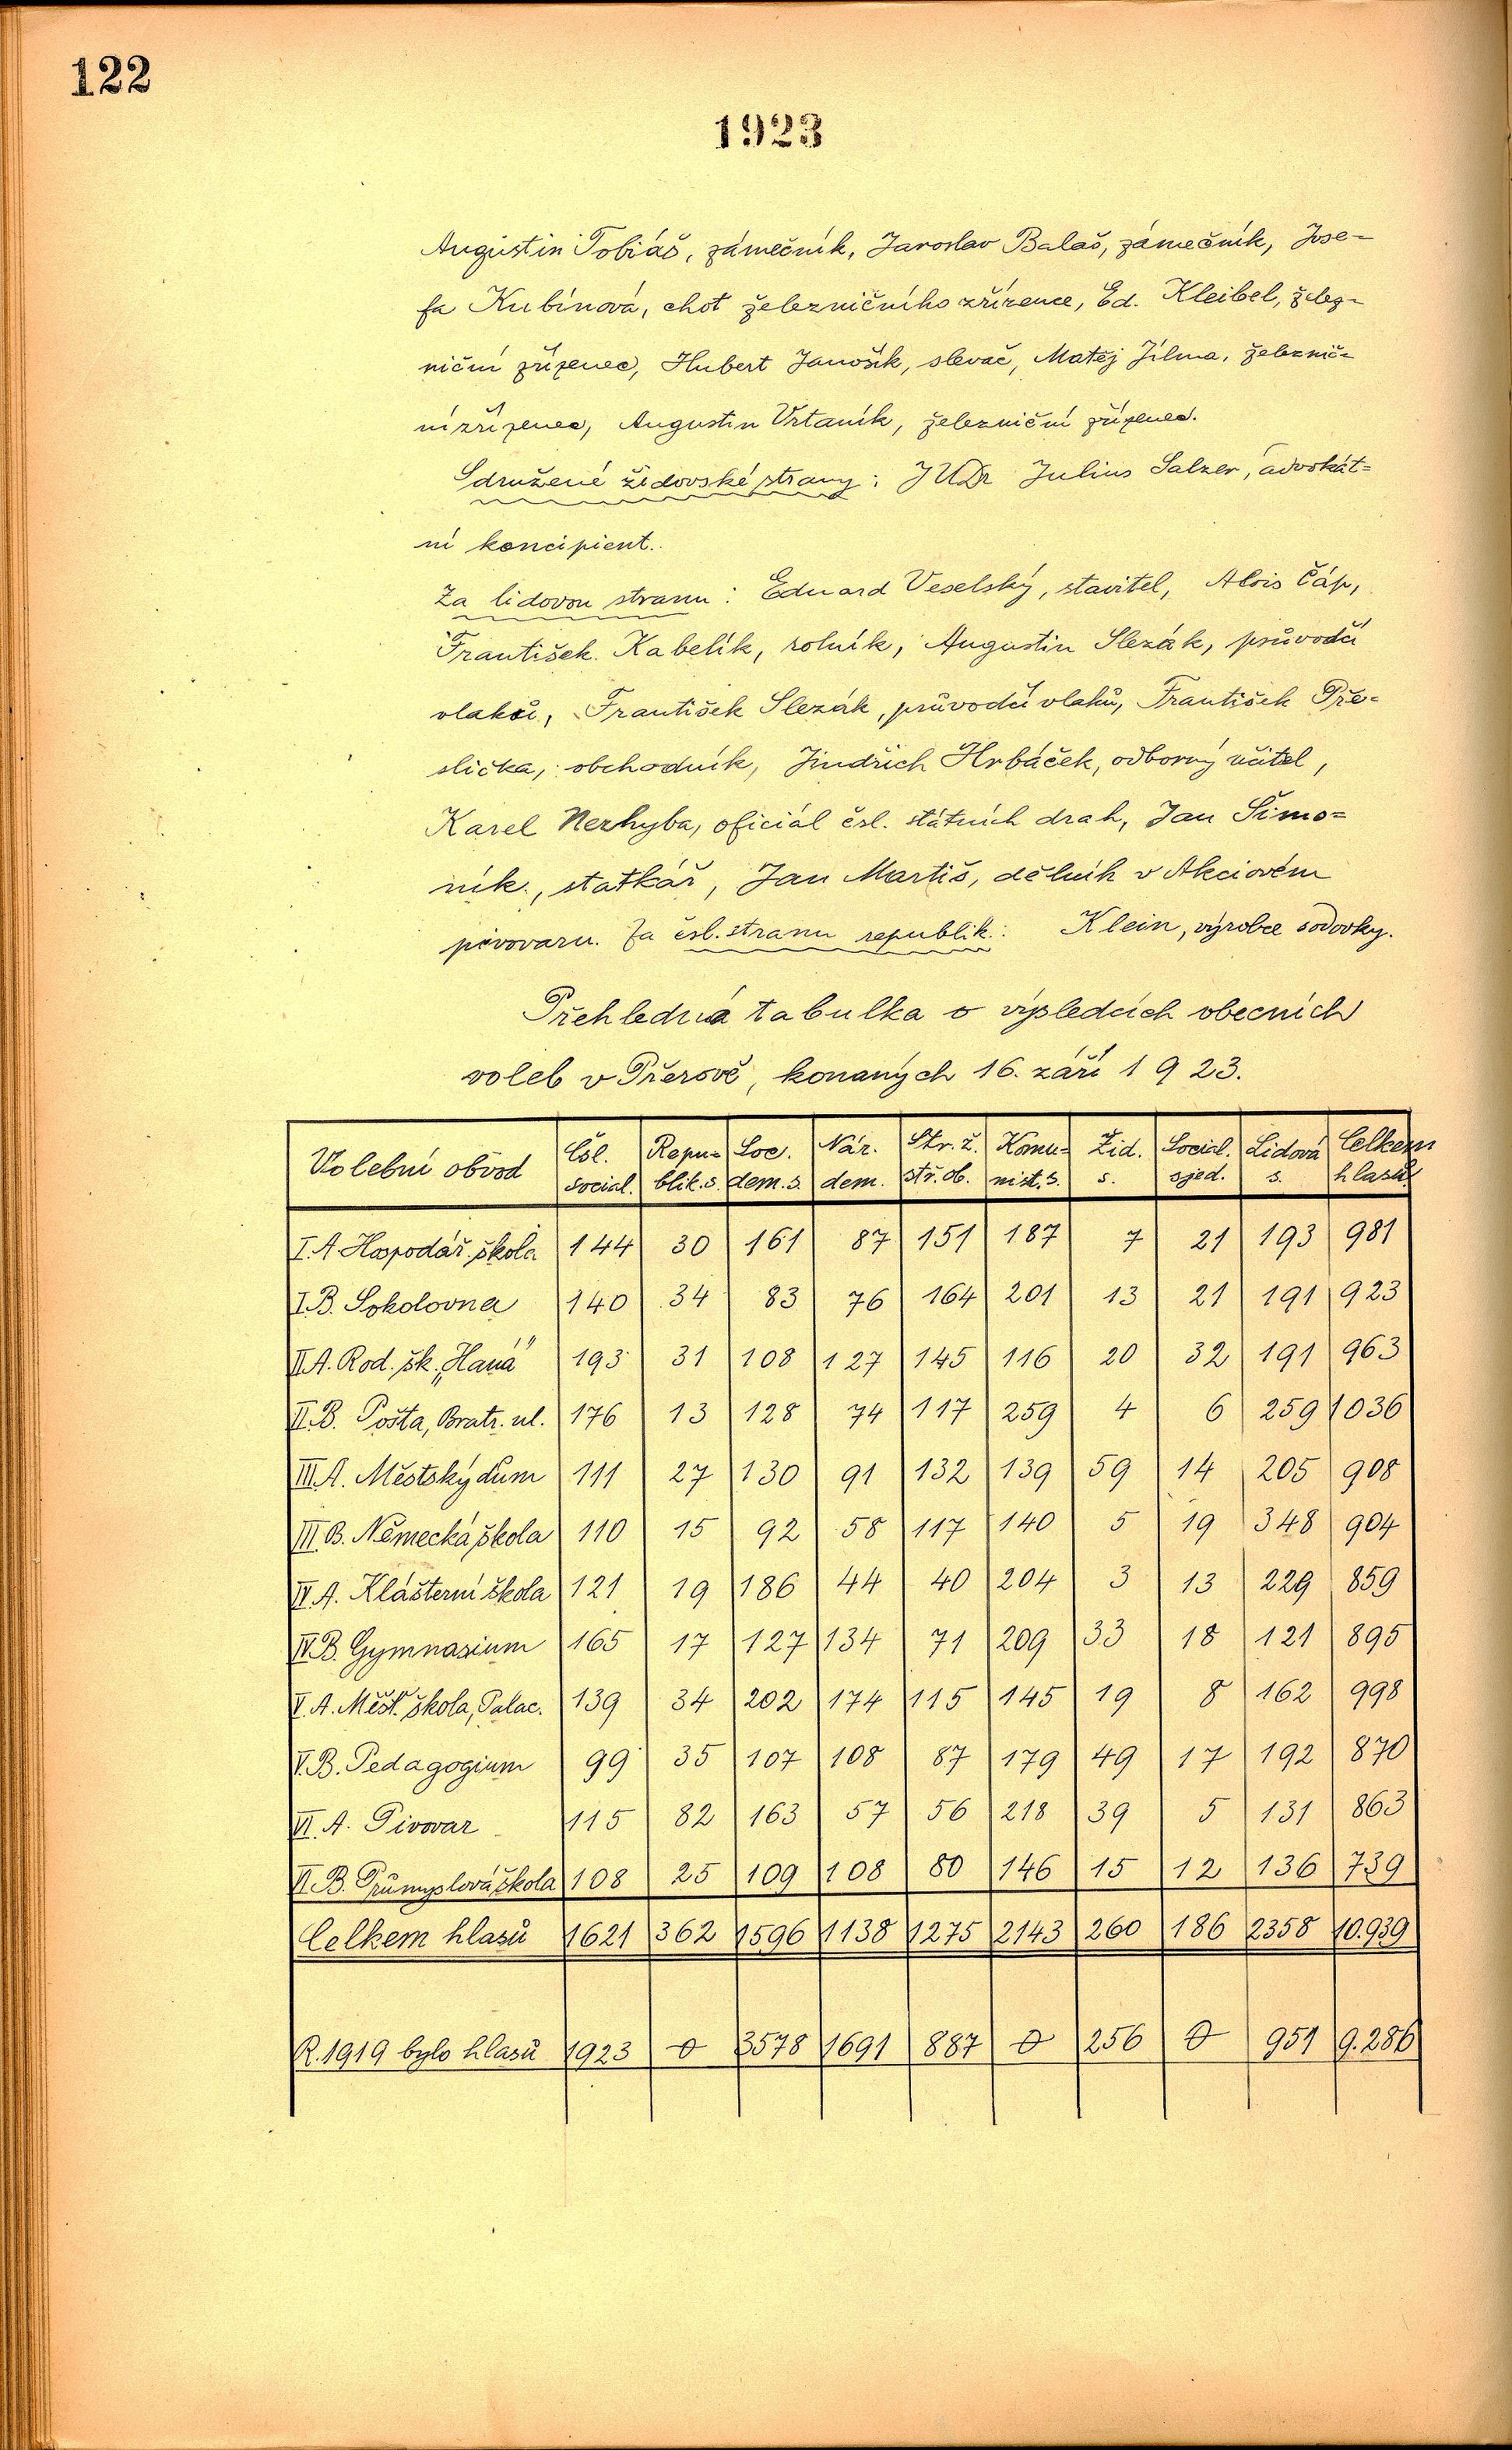 122
1923
Augustin Tobiáš, zámečník, Jaroslav Balaš, zámečník, Jose-
fa Kubínová, choť železničního zřízence, Ed. Kleibel, želez-
niční zřízenec, Hubert Janošík, slevač, Matěj Jílma, železnič-
ní zřízenec, Augustin Vrtaník, železniční zřízenec.
Sdružené židovské strany: JUDr Julius Salzer, advokát=
ní koncipient.
Za lidovou stranu: Eduard Veselský, stavitel, Alois Čáp,
František Kabelík, rolník, Augustin Slezák, průvodčí
vlaků, František Slezák, průvodčí vlaků, František Pře-
slička, obchodník, Jindřich Hrbáček, odborný učitel,
Karel Nezhyba, oficiál čsl. státních drah, Jan Šimo=
ník, statkář, Jan Martiš, dělník v Akciovém
pivovaru. Za čsl. stranu republik.: Klein, výrobce sodovky.
Přehledná tabulka o výsledcích obecních
voleb v Přerově, konaných 16. září 1923.
Volební obvod Čsl. social. Repu=blik. s. Soc. dem. s. Nár. dem. Str. ž. stř. ob. Komu=nist. s. Žid. s. Social. sjed. Lidová s. Celkem hlasů
I. A. Hospodář. škola 144 30 161 87 151 187 7 21 193 981
I. B. Sokolovna 140 34 83 76 164 201 13 21 191 923
II. A. Rod. šk. „Haná" 193 31 108 127 145 116 20 32 191 963
II. B. Pošta, Bratr. ul. 176 13 128 74 117 259 4 6 259 1036
III. A. Městský dům 111 27 130 91 132 139 59 14 205 908
III. B. Německá škola 110 15 92 58 117 140 5 19 348 904
IV. A. Klášterní škola 121 19 186 44 40 204 3 13 229 859
IV. B. Gymnasium 165 17 127 134 71 209 33 18 121 895
V. A. Měšť. škola, Palac. 139 34 202 174 115 145 19 8 162 998
V. B. Pedagogium 99 35 107 108 87 179 49 17 192 870
VI. A. Pivovar 115 82 163 57 56 218 39 5 131 863
VI. B. Průmyslová škola 108 25 109 108 80 146 15 12 136 739
Celkem hlasů 1621 362 1596 1138 1275 2143 260 186 2358 10.939
R. 1919 bylo hlasů 1923 0 3578 1691 887 0 256 0 951 9.286